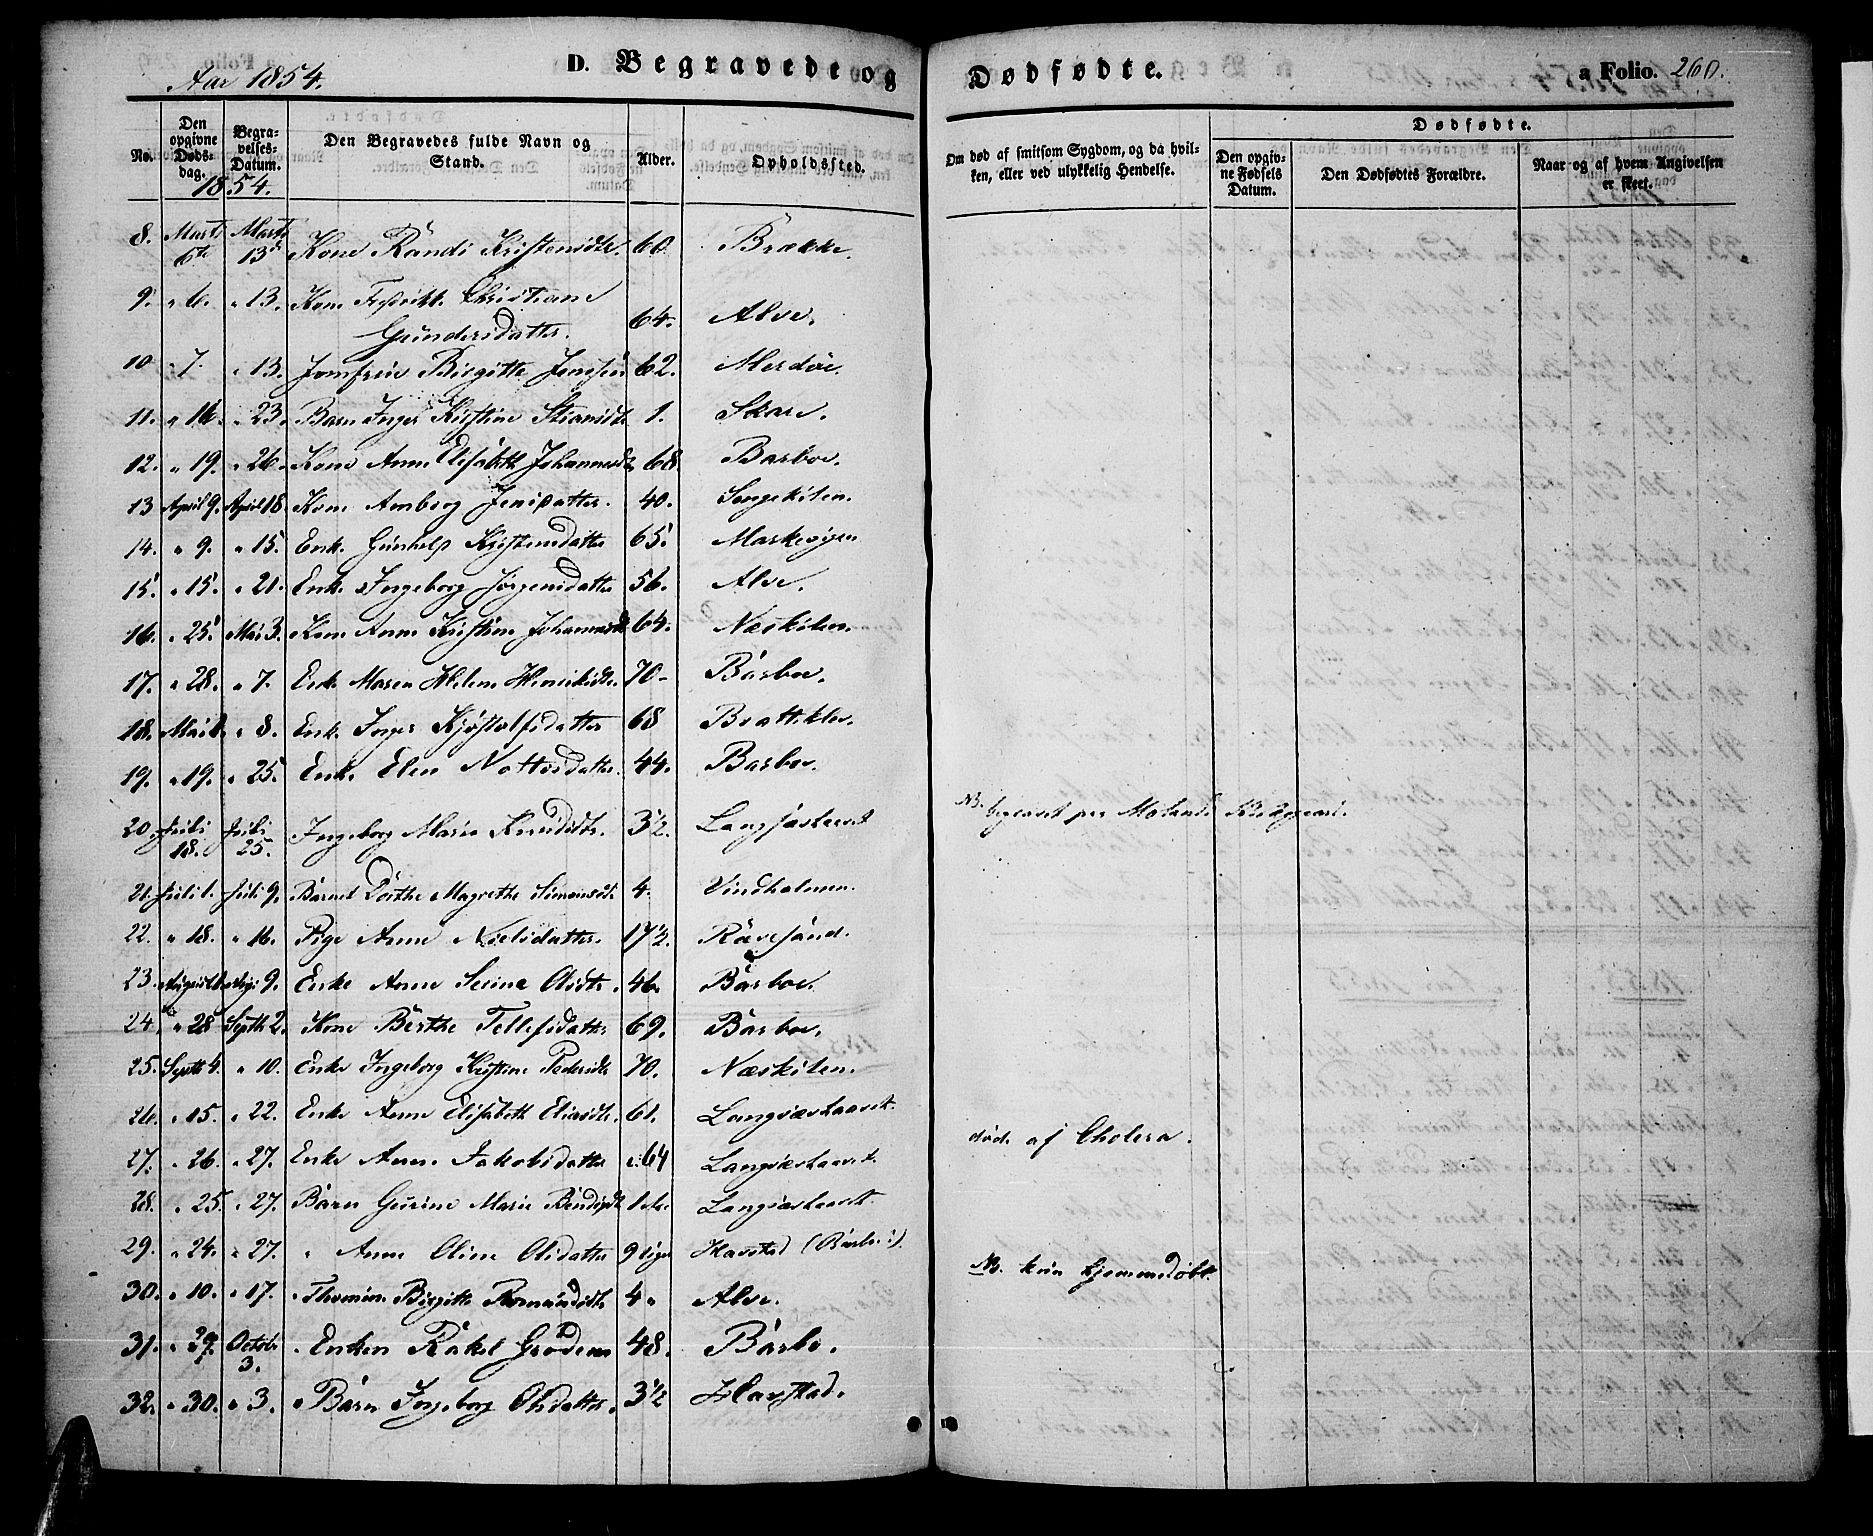 Aar 1854.
D. Begravede og Dødfødte.
a Folio. 260.
No.
Den opgivne Døds-dag.
Begra-velses-Datum.
1854.
Den Begravedes fulde Navn og Stand.
Alder.
Opholdssted.
Om død af smitsom Sygdom, og da hvil-
ken, eller ved ulykkelig Hendelse.
Dødfødte.
Den opgiv-ne Fødsels Datum.
Den Dødfødtes Forældre.
Naar og af hvem Angivelsen er skeet.
8. Marts 6te Marts 13de Kone Randi Kristensdtr. 60 Brække.
9. " 6. " 13. Kone Fredrikke Christiane
Gundersdatter. 64. Alve.
10 " 7. " 13. Jomfrue Birgitte Jensen 62. Merdøe.
11. " 16. " 23. Barn Inger Kirstine 1. Skare.
12. " 19. " 26. Kone Anne Elisabeth Johannesd 68 Barboe.
13 April 9. April 18. Kone Amborg Jensdatter. 40. Songekilen.
14. " 9. " 15. Enke Gunhild Kristensdatter 65. Markevigen
15. " 15. " 21. Enke Ingeborg Jørgensdatter 56. Alve.
16. " 25. Mai 3. Kone Anne Kirstine Johannesd 64. Næskilen.
17. " 28. " 7. Enke Maren Helene Henriksdtr. 70- Barboe.
18. Mai " 8. Enke Inger Kjøstolfsdatter 68 Bratteklev.
19. " 19. " 25. Enke Elen 44. Barboe.
20. Juli 18. Juli 25. Ingeborg Marie Knudsdtr. 3½. Langsæehavet NB. begravet paa Molands Kirkegaard.
21. Juli 1. Juli 9. Barnet Dorthe Magrethe Simonsdtr 4. Vindholmen.
22. " 18. " 16. Pige Anne Nielsdatter. 17½. Rævesand.
23. August Aug. 9. Enke Anne Serine Olsdtr. 46. Barboe.
24. " 28 Septb 2. Kone Berthe Tellefsdatter 69. Barboe.
25. Septb 4. " 10. Enke Ingeborg Kirstine Pedersdtr 70. Næskilen.
26. " 15. " 22. Enke Anne Elisabeth Eliasdtr. 61. Langsæehavet.
27. " 26. " 27. Enke Anne Jakobsdatter 64 Langsæehavet. død af Cholera.
28. " 25. " 27. Barn Gurine Marie Langsæehavet.
29. " 24. " 27. " Anne Oline Olsdatter 9 Uger Havstad (Barbo). NB. kun hjemmedøbt.
30. " 10. " 17. " Thomine Birgitte 4 " Alve.
31. " 29. Octob. 3. " Enken Rakel 48. Barbo.
32. " 30. " 3. " Barn Ingeborg Olsdatter. 3½ Havstad.